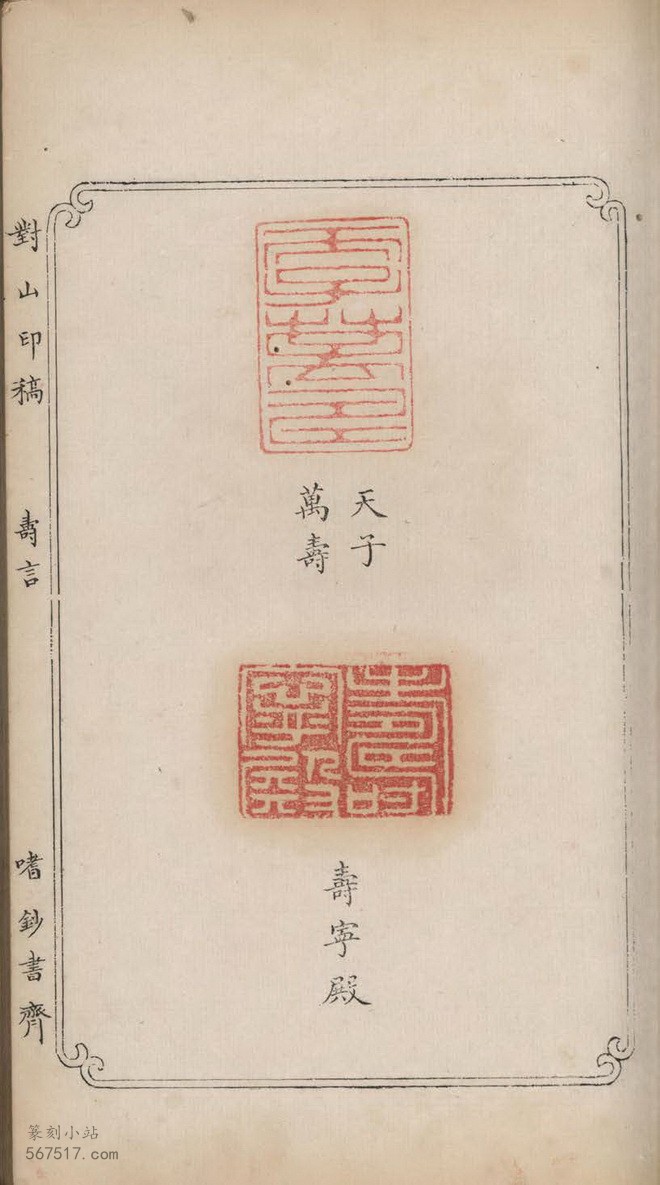 天子
萬壽
壽寧殿
對山印稿
壽言
嗜鈔書齊
篆刻小站
567517.com